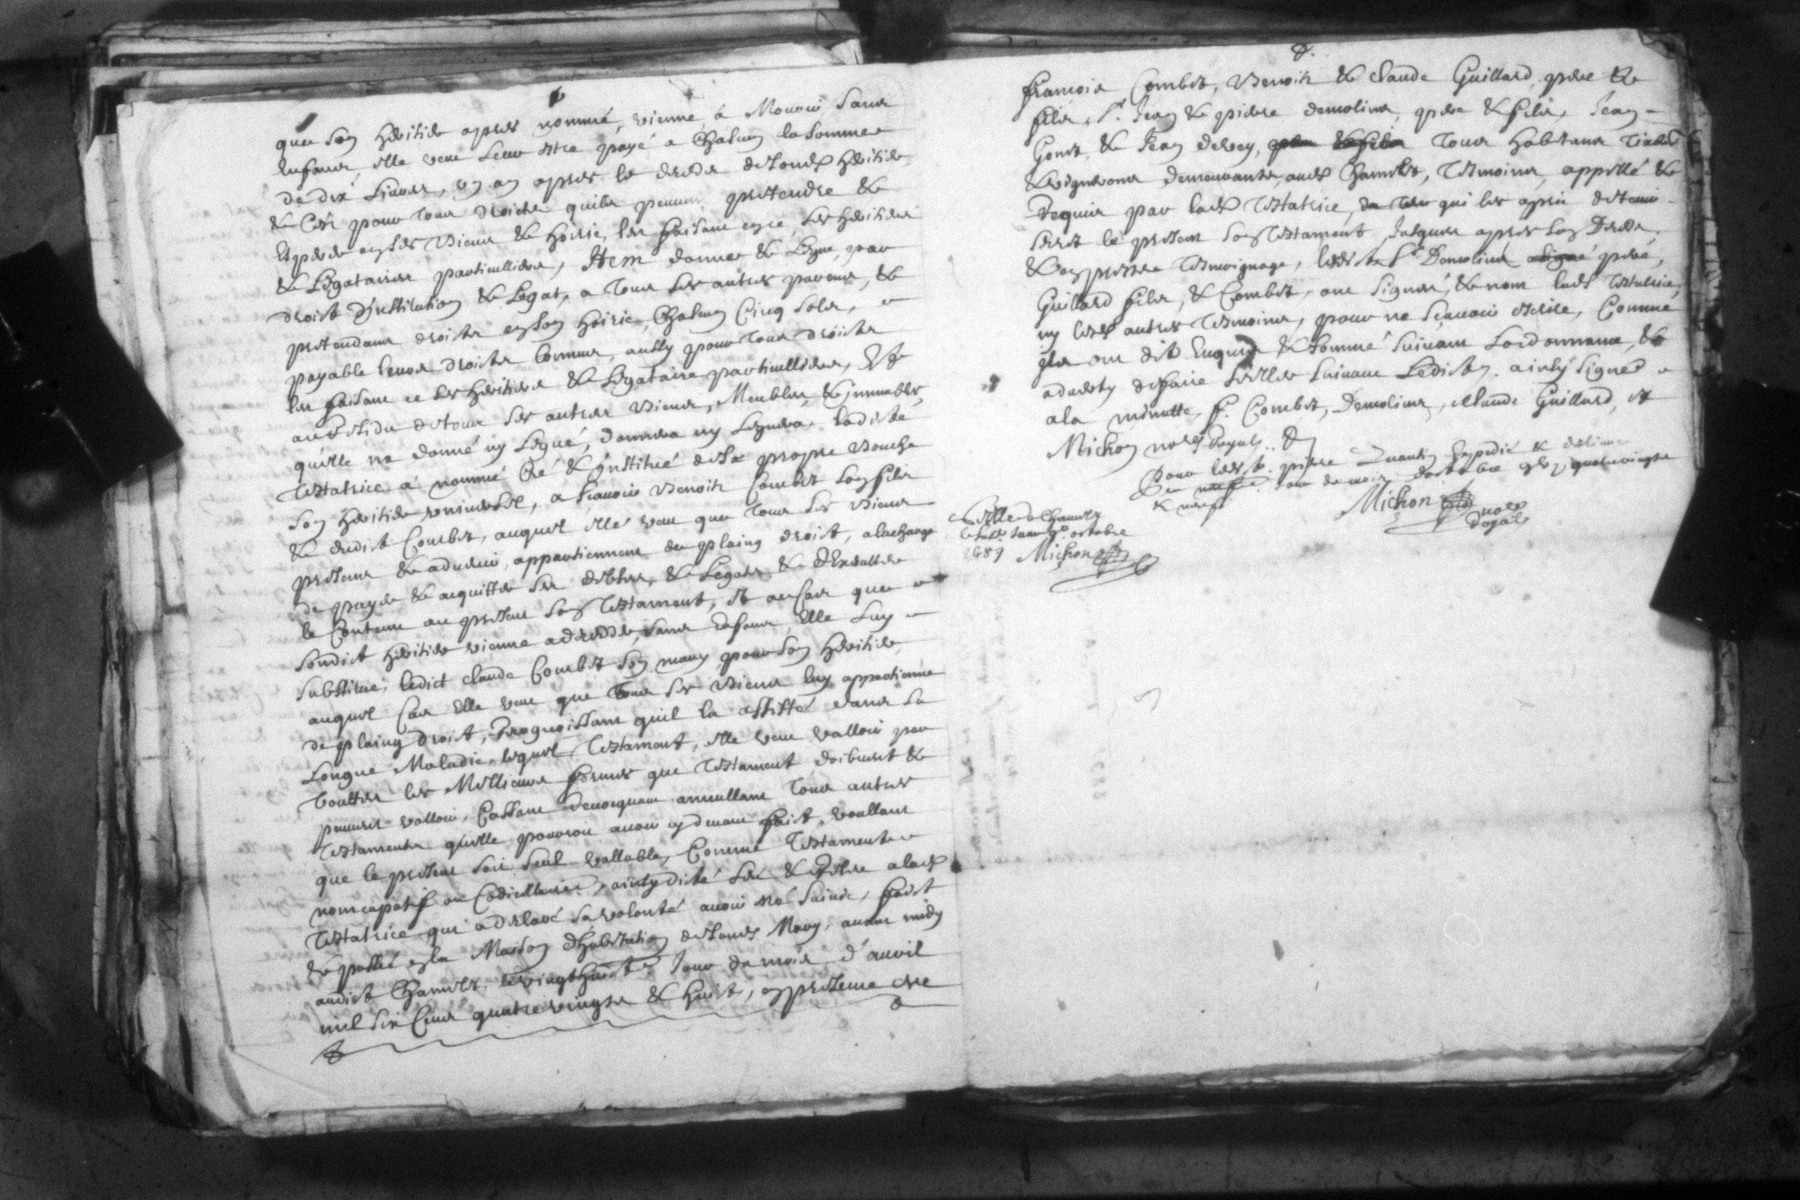 que son heritier apres nommé, vienne, a Mourir sans
enfans, elle veut leur estre payé a Chascun la somme
de dix livres, un an apres le deces desond heritier
& Cest pour tous droicts quils peuvent pretendre &
esperer en ses Biens & hoirie, les faisant en ce, ses heritiers
& Legataires particulliers, Item donne & Legue, par
droict d'institution & Legat, a tous ses autres parens, &
pretendans droicts en son hoirie, Chascun Cinq sols,
payable leurs droicts Comme, aussy pour tous droicts
les faisant ce ses heritiers & Legataire particulliers, Et
au Residu de tous ses autres Biens, Meubles & immubles,
qu'elle na donné ny Legué, donnera ny Leguera, ladicte
Testatrice, a nommé Cré & institué de sa propre Bouche
son heritier universel, a François Benoit Combet son filz
& dudict Combet, auquel elle veut que tous ses Biens
presens & advenir, appartiennent de plaing droict, a la charge
de payer & acquitter ses debtes, & Legats & d'Executter
le Contenu au present son Testament, Et au Cas que
sondict heritier vienne a deceder, sans Enfans, Elle luy
substitue, ledict Claude Combet son mary, pour son heritier,
auquel Cas elle veut que tous ses Biens luy appartienne
de plaing droict, Recognoissant quil la assisté dans sa
Longue Maladie, lequel Testament, elle veut valloir par
touttes les Meilleures formes que Testament doibvent &
peuvent valloir, Cassant Revocquant annullant tous autres
Testaments qu'elle pourroit avoir cy devant faict, voullant
que le present soit seul vallable, Comme Testament
noncupatif ou Codicillaire, ainsy dicté leu & Releu a lad
Testatrice qui a declaré sa volonté avoir esté suivie, faict
& passé en la Maison d'habitation de sond Mary, avant midy
audict Chamelet, le vingthuict jour du mois d'avril
mil six Cens quatre vingts & huict, en presence de
François Combet, Benoit & Claude Guillard, pere &
filz, Sr Jean & pierre demolins, pere & filz, Jean
Gonet, & Jean Dervey, tous habitans
& vignerons demeurants, aud Chamelet, Tesmoins, appellé &
Requis par lad Testatrice, qui les a prié de tenir
secret le present son Testament, Jusques apres son Deces,
& en porter tesmoignage, lesd Sr Demolins pere,
Guillard filz, & Combet, ont signé, & non lad Testatrice,
ny lesd autres Tesmoins, pour ne sçavoir escrire, Comme
ils ont dit Enquis & sommé suivant Lordonnance, &
adverty de faire sceller suivant Ledict, ainsy signé
a la minutte, f. Combet, Demolins, Claude Guillard, et
Michon nore Royal.
Pour led Sr pierre expedié & delivré
Ce jour du mois quatrevingts
& neuf
Michon nore
Royal
Scellé a Chamelet
octobre
1689 Michon